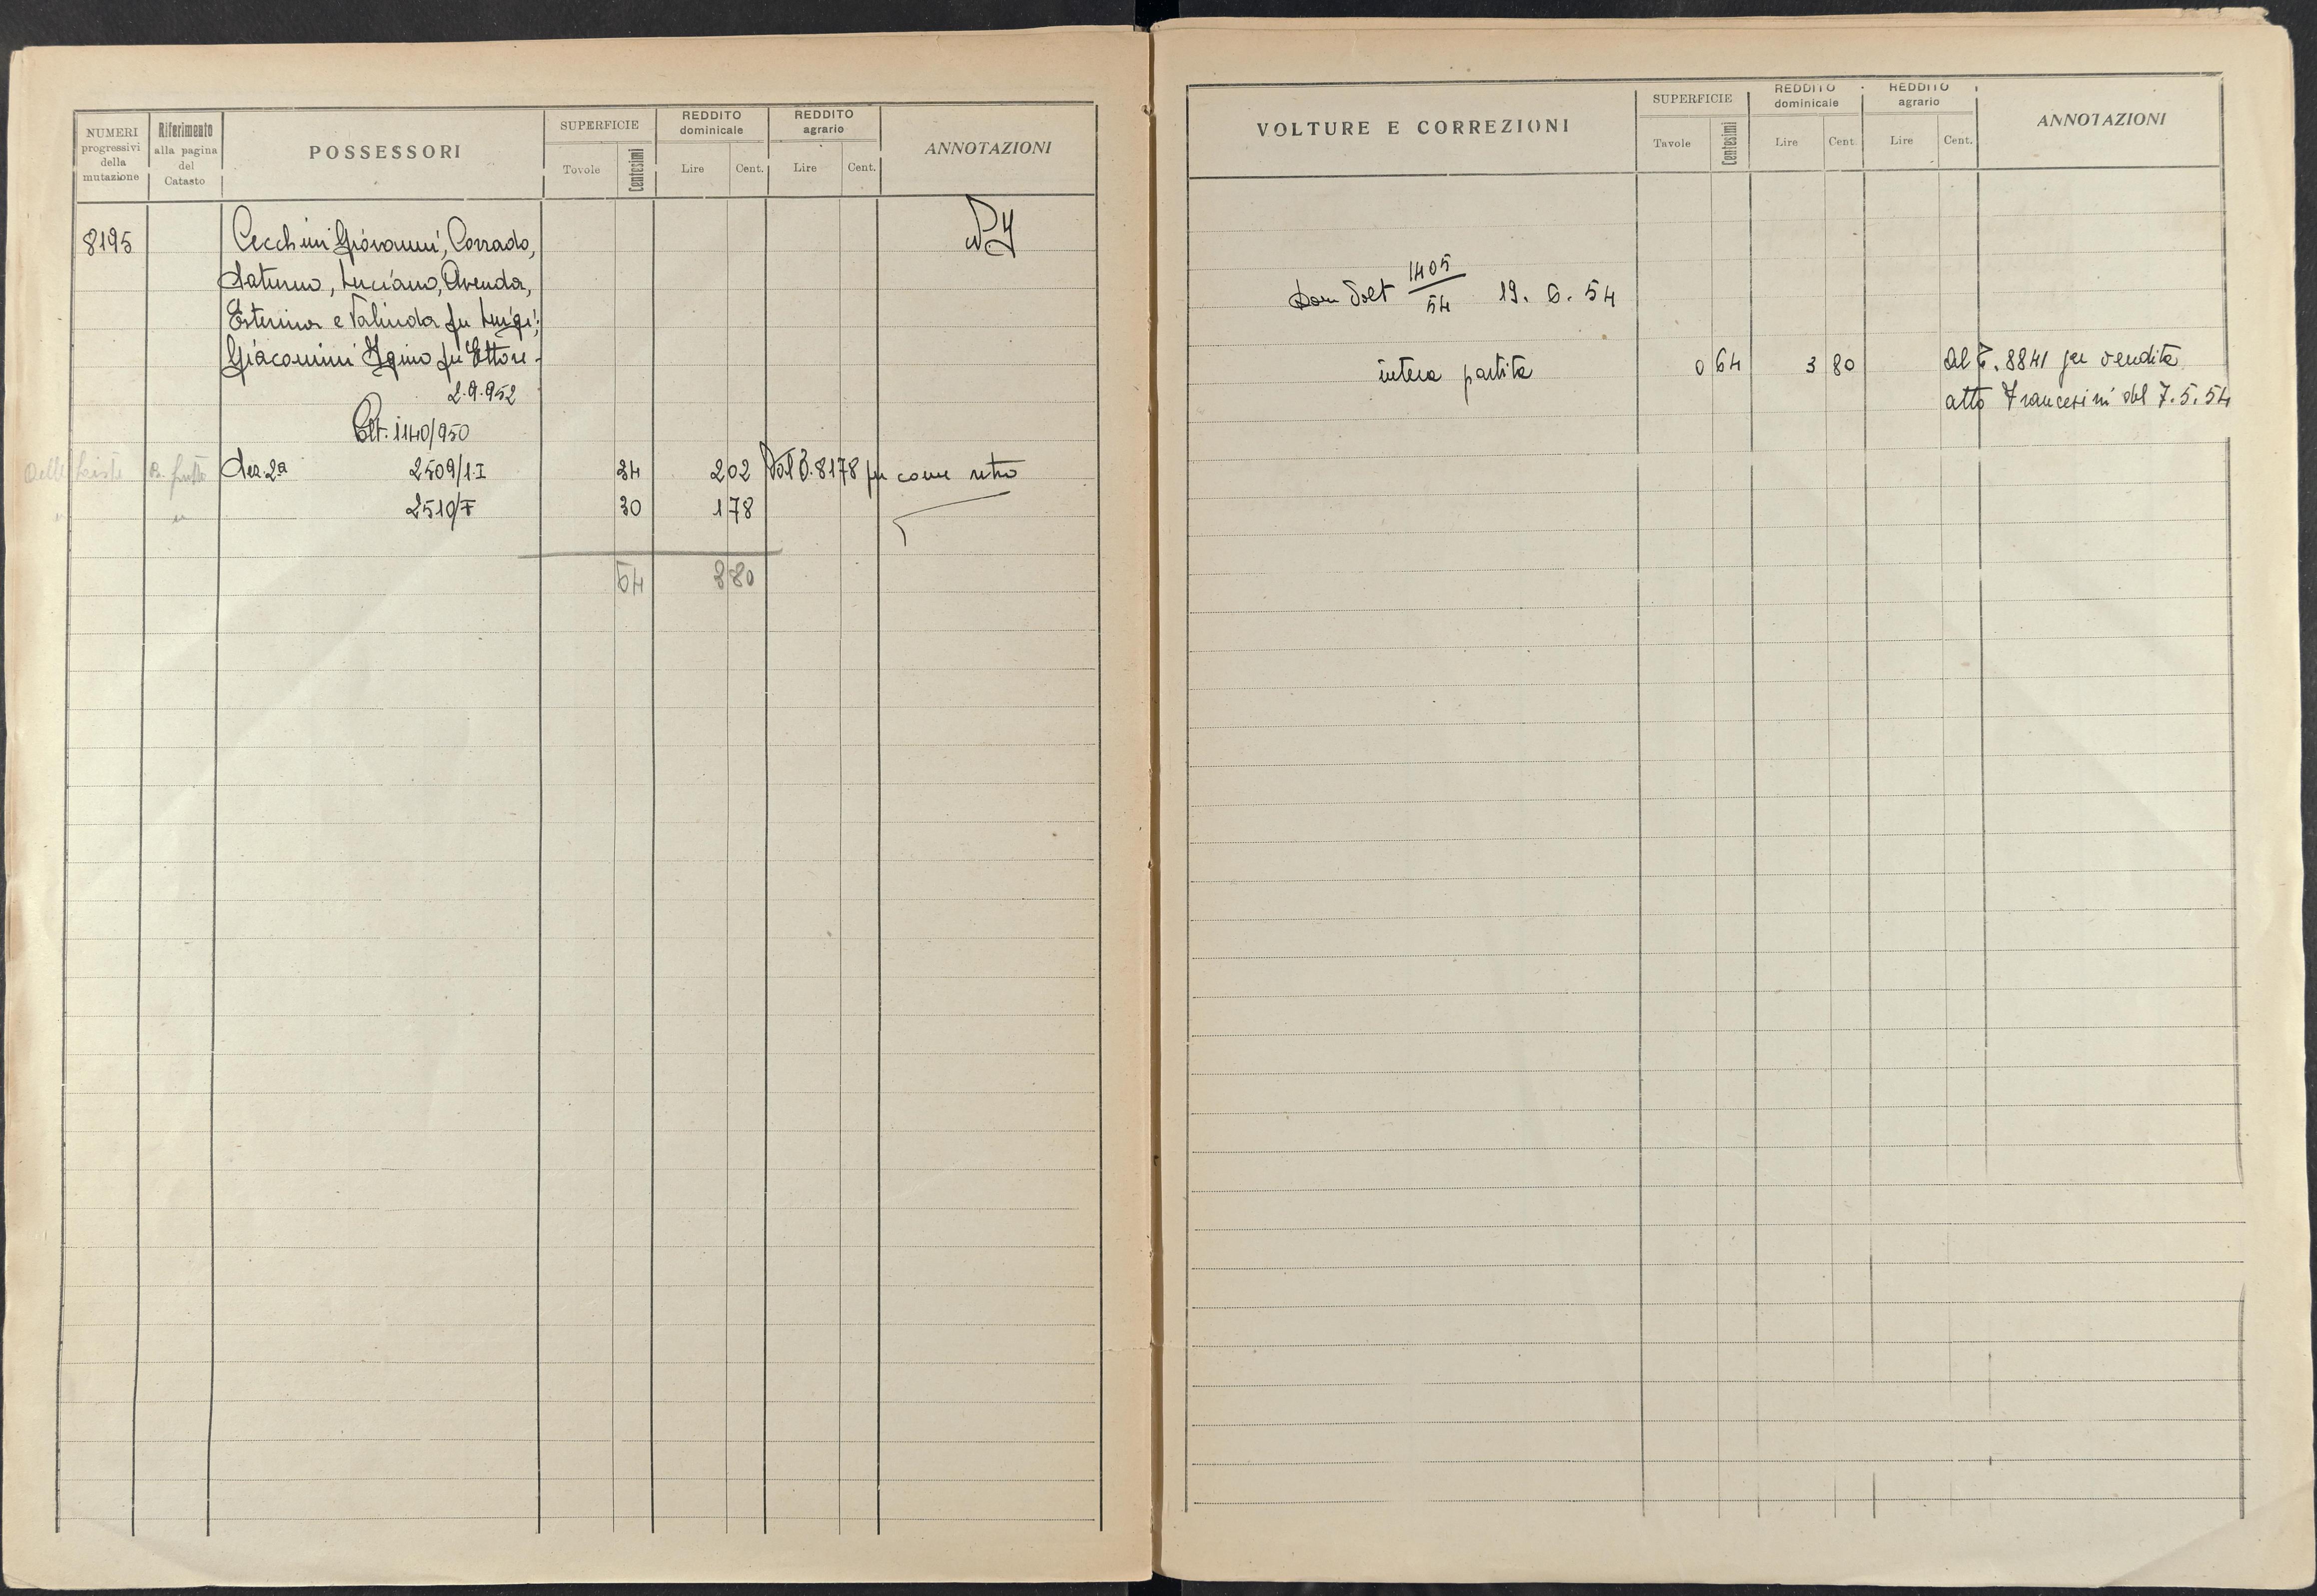 NUMERI progressivi della mutazione
Riferimento alla pagina del Catasto
POSSESSORI
SUPERFICIE
Tovole
Centesimi
REDDITO dominicale
Lire
Cent.
REDDITO agrario
Lire
Cent.
ANNOTAZIONI
8195
Cecchini Giovanni, Corrado,
Saturno, Luciano, Avenda,
Esterina e Valinda fu Luigi;
Giacomini Igino fu Ettore -
2.9.952
1140/950
Sez. 2ª 2509/1.I 34 2 02 Dal P. 8178 per come retro
2510/I 30 1 78
64 3 80
VOLTURE E CORREZIONI
SUPERFICIE
Tavole
Centesimi
REDDITO dominicale
Lire
Cent.
REDDITO agrario
Lire
Cent.
ANNOTAZIONI
Dom Volt 1405/54 19. 6. 54
intera partita 0 64 3 80 Al P. 8841 per vendita
atto Francesini del 7.5.54